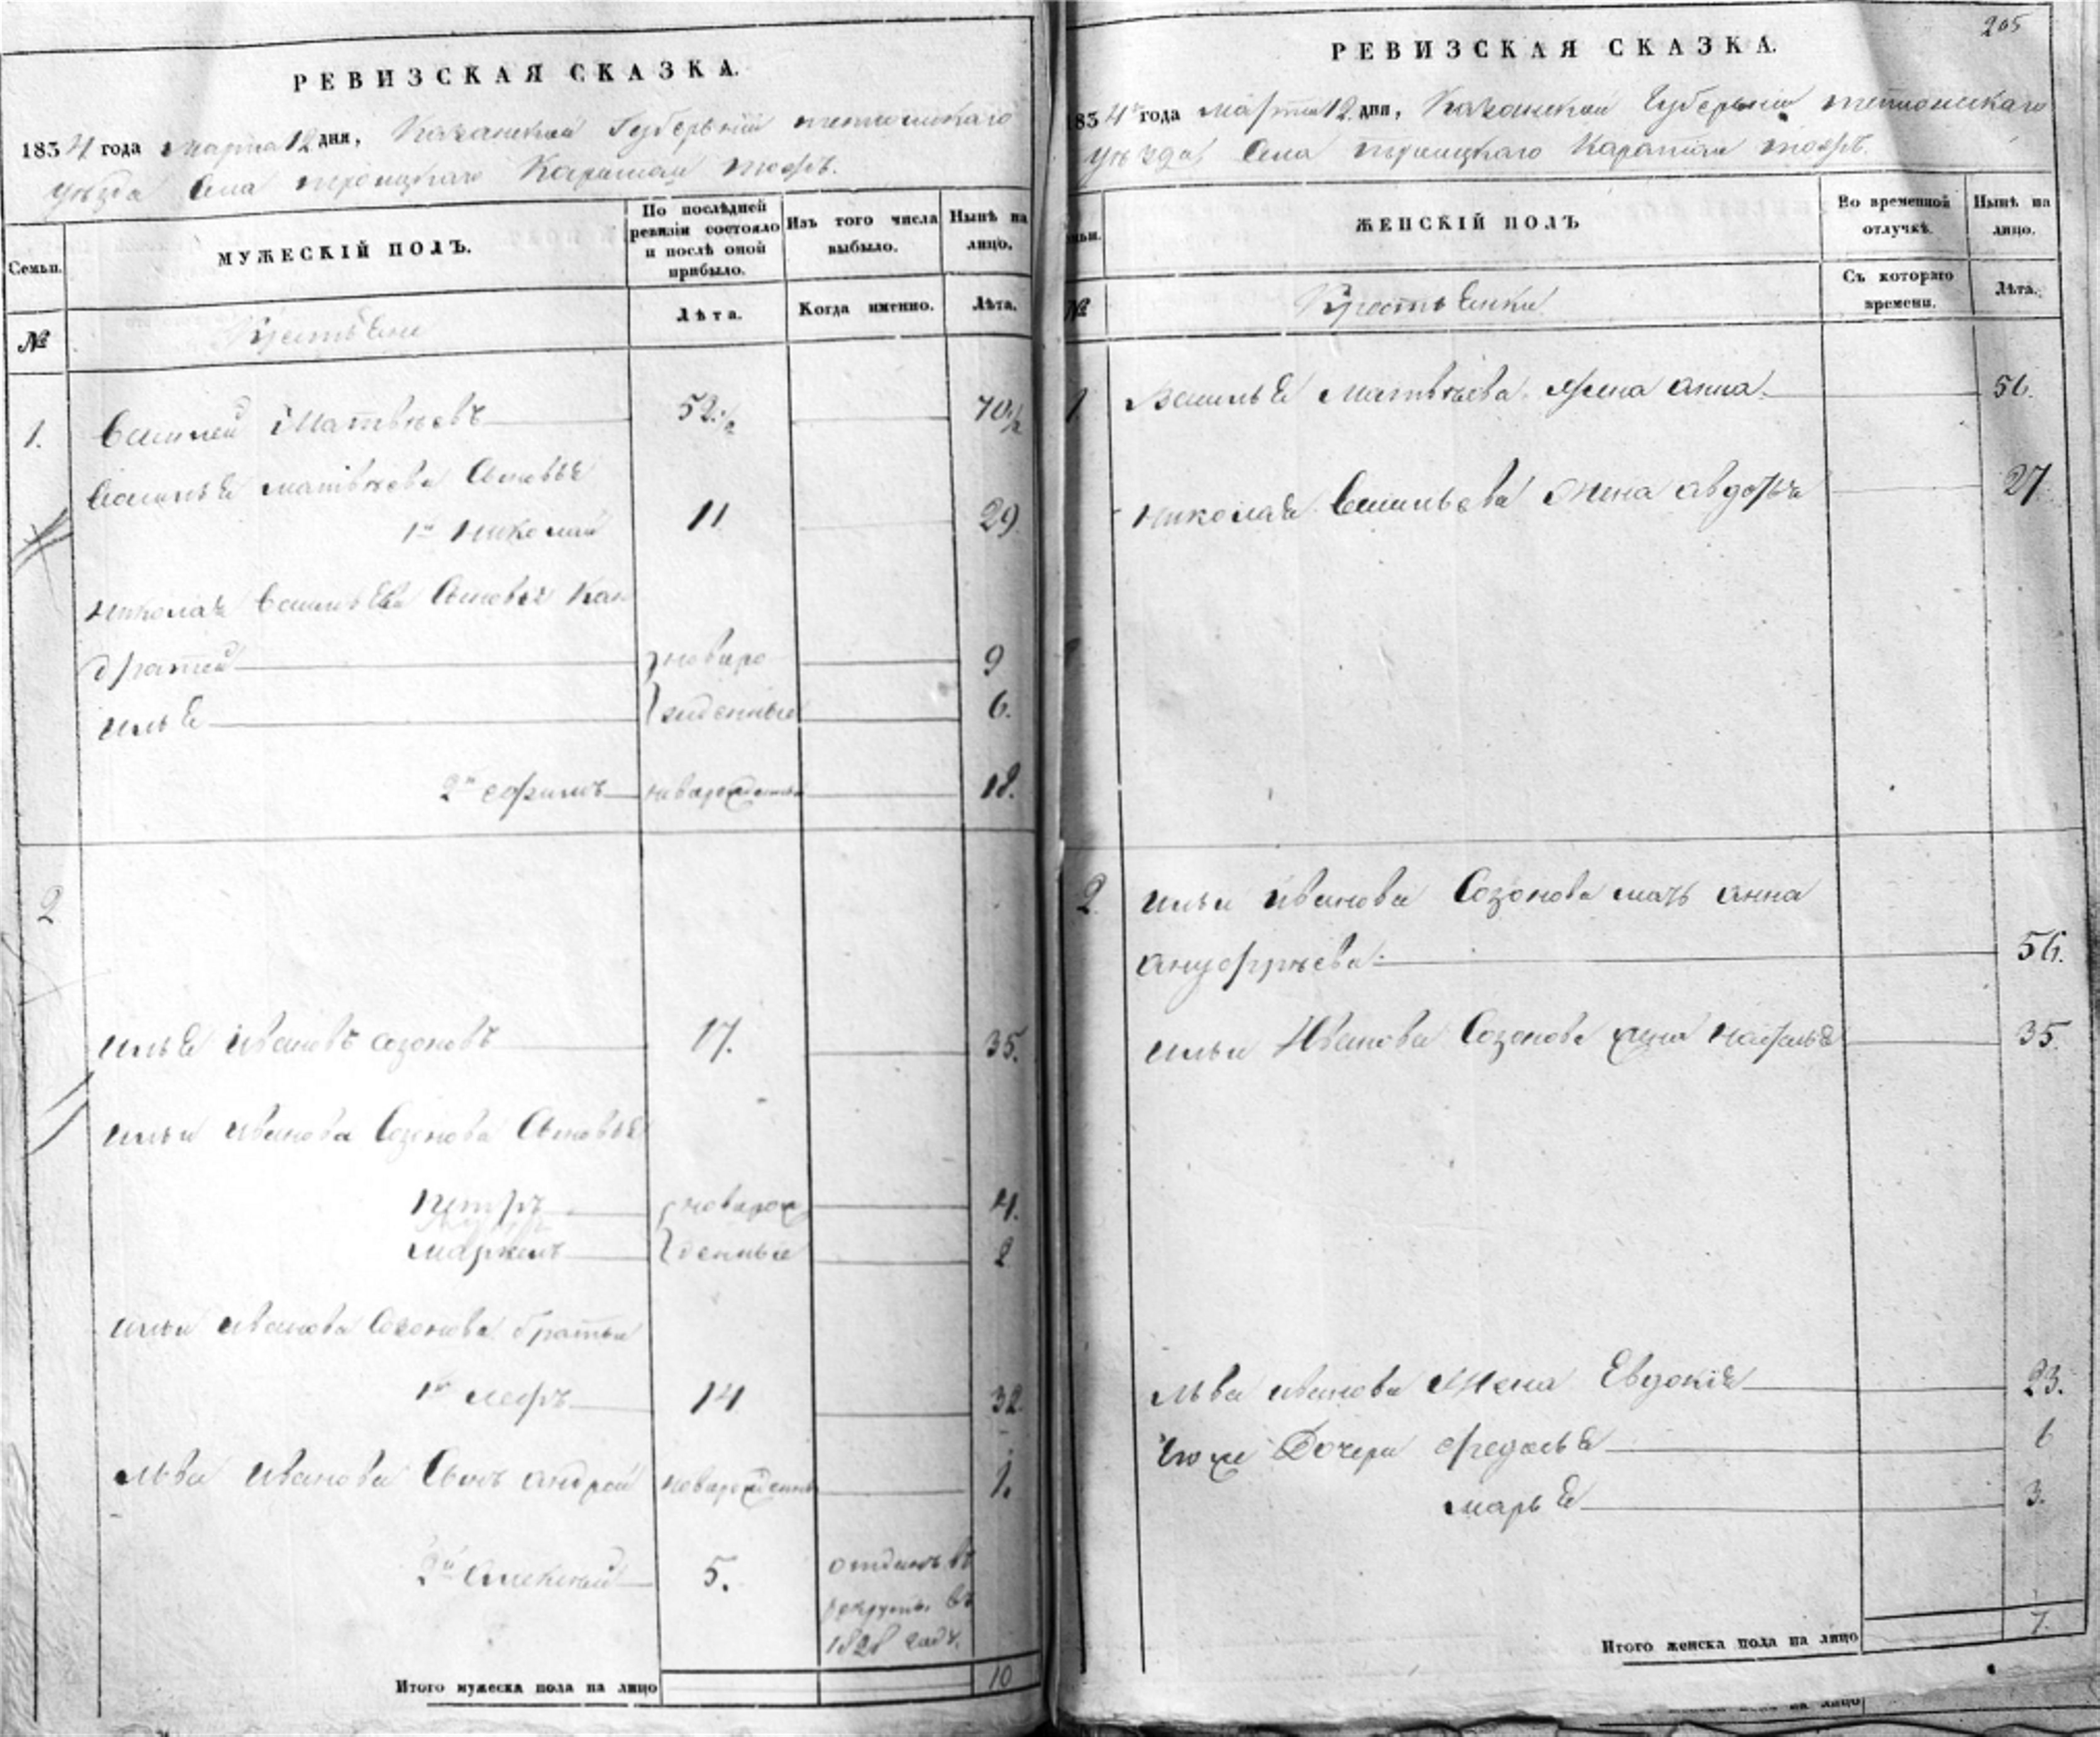 РЕВИЗСКАЯ СКАЗКА.
1834 года марта 12 дня, Казанской Губернiи тетюшскаго
уѣзда Села троицкаго Каратай тожъ.
Семьи.
МУЖЕСКIЙ ПОЛЪ.
По послѣдней ревизiи состояло и послѣ оной прибыло.
Изъ того числа выбыло.
Нынѣ на лицо.
№
Крестьяне
Лѣта.
Когда именно.
Лѣта.
1. Василей Матвѣевъ 52 1/2 70 1/2
Василья матвѣева Сыновья
1й Николай 11 29
Николая Васильева Сыновья Кан
дратей новаро 9
илья жденные 6.
2й ефимъ новарожденный 18.
2
илья Ивановъ созоновъ 17. 35.
ильи иванова Созонова Сыновья
Петръ новарож 4.
Маркелъ денные 2
ильи иванова Созонова братья
1й левъ 14 32.
льва иванова Сынъ андрей новарожденный 1.
2й Алексей 5. отданъ въ
рекруты въ
1828 году.
Итого мужеска пола на лицо 10
205
РЕВИЗСКАЯ СКАЗКА.
1834 года марта 12 дня, Казанской Губернiи тетюшскаго
уѣзда Села троицкаго Каратай тожъ.
ЖЕНСКIЙ ПОЛЪ
Во временной отлучкѣ.
Нынѣ на лицо.
№
Крестьянки
Съ котораго времени.
Лѣта.
1 Василья Матвѣева жена анна 56.
Николая Васильева жена авдотья 27.
2. ильи иванова Созонова мать анна
ануфрiева 56.
ильи Иванова Созонова жена наталья 35.
льва иванова Жена Евдокiя 23.
Ево же Дочери федосья 6
марья 3.
Итого женска пола на лицо 7.
на лицо